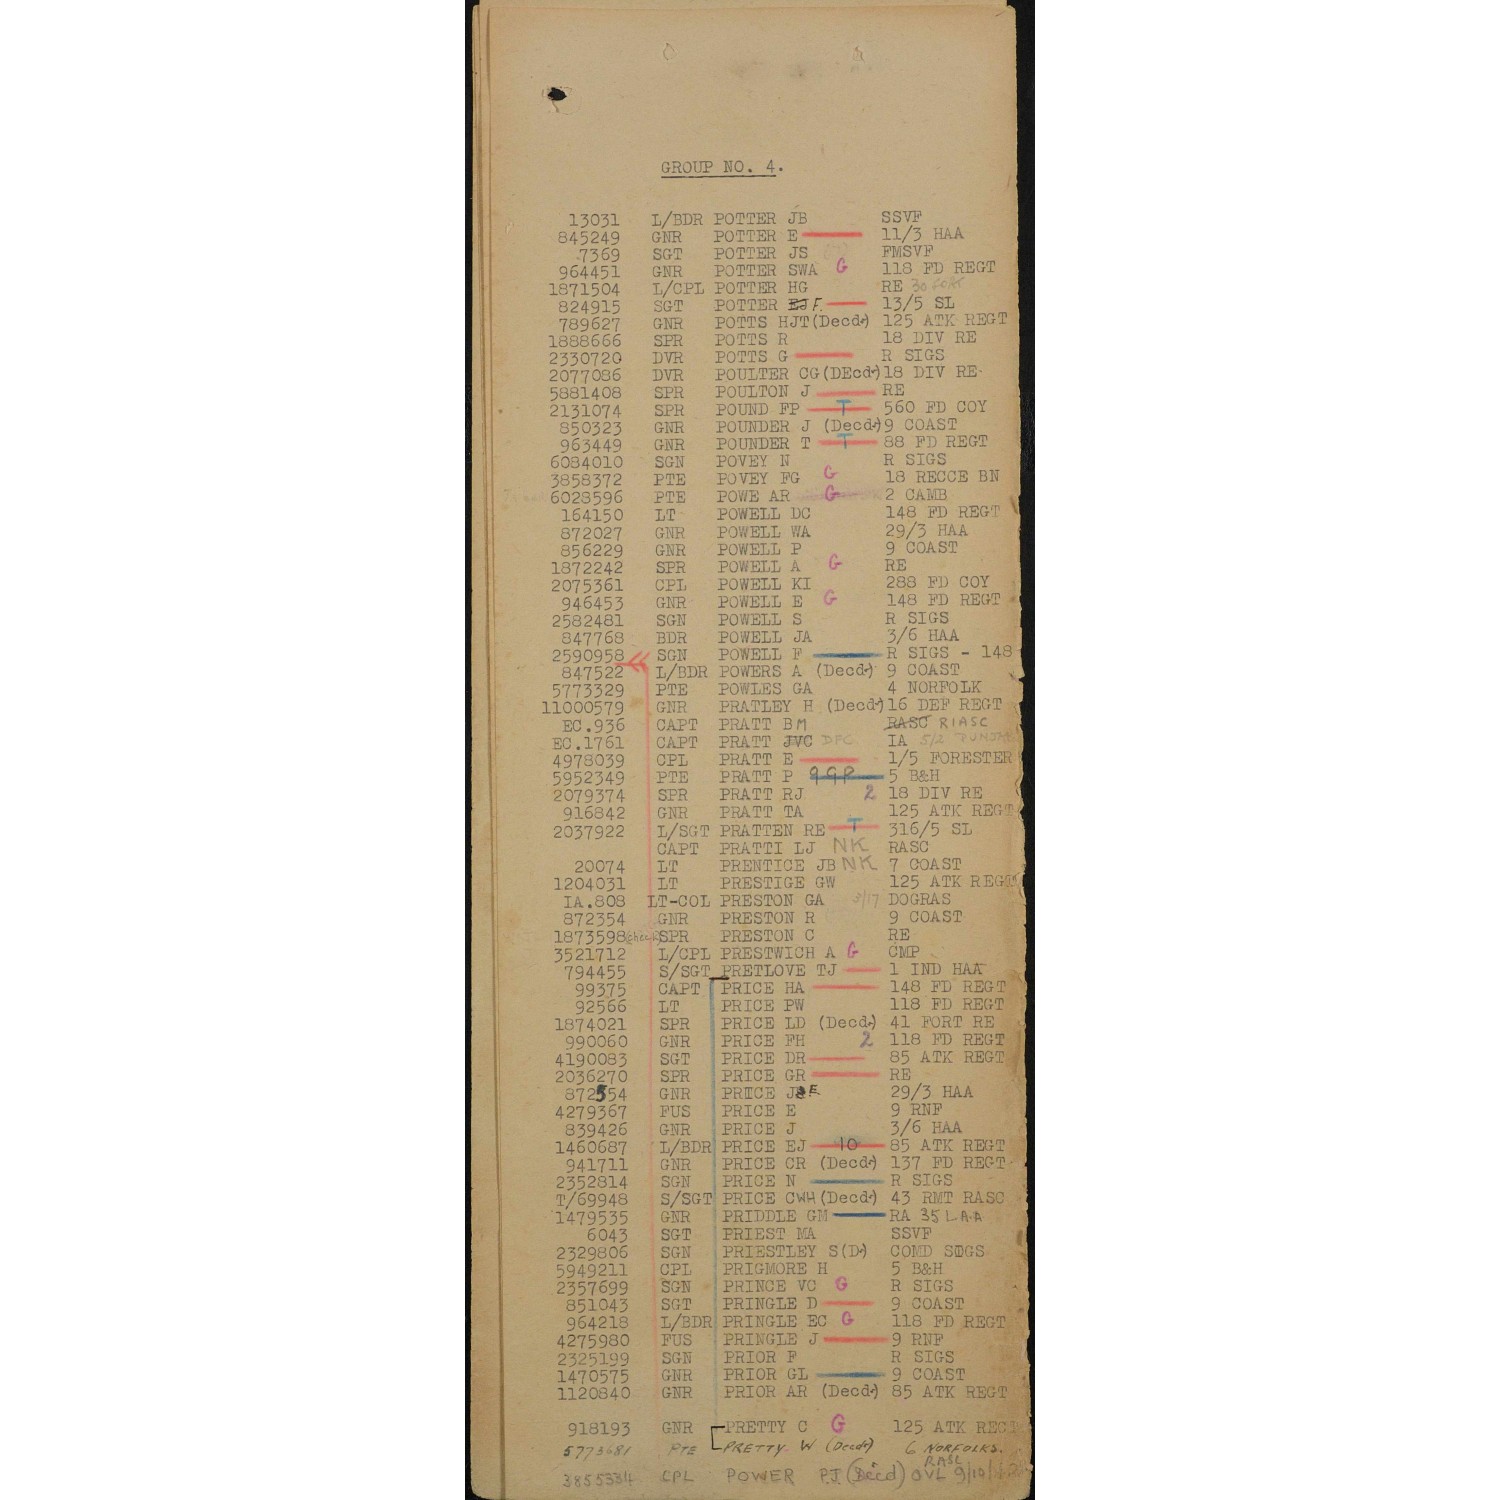 GROUP NO. 4.
13031 L/BDR POTTER JB SSVF
845249 GNR POTTER E 11/3 HAA
7369 SGT POTTER JS FMSVF
964451 GNR POTTER SWA G 118 FD REGT
1871504 L/CPL POTTER HG RE 30 FORT
824915 SGT POTTER EJ F. 13/5 SL
789627 GNR POTTS HJT(Decd.) 125 ATK REGT
1888666 SPR POTTS R 18 DIV RE
2330720 DVR POTTS G R SIGS
2077086 DVR POULTER CG(DEcd.) 18 DIV RE
5881408 SPR POULTON J RE
2131074 SPR POUND FP T 560 FD COY
850323 GNR POUNDER J (Decd.) 9 COAST
963449 GNR POUNDER T T 88 FD REGT
6084010 SGN POVEY N R SIGS
3858372 PTE POVEY FG G 18 RECCE BN
6028596 PTE POWE AR G 2 CAMB
164150 LT POWELL DC 148 FD REGT
872027 GNR POWELL WA 29/3 HAA
856229 GNR POWELL P 9 COAST
1872242 SPR POWELL A G RE
2075361 CPL POWELL KI 288 FD COY
946453 GNR POWELL E G 148 FD REGT
2582481 SGN POWELL S R SIGS
847768 BDR POWELL JA 3/6 HAA
2590958 SGN POWELL F R SIGS - 148
847522 L/BDR POWERS A (Decd.) 9 COAST
5773329 PTE POWLES GA 4 NORFOLK
11000579 GNR PRATLEY H (Decd.) 16 DEF REGT
EC.936 CAPT PRATT BM RASC RIASC
EC.1761 CAPT PRATT JVC DPC IA 5/2 PUNJAB
4978039 CPL PRATT E 1/5 FORESTER
5952349 PTE PRATT P 5 B&H
2079374 SPR PRATT RJ 2 18 DIV RE
916842 GNR PRATT TA 125 ATK REGT
2037922 L/SGT PRATTEN RE T 316/5 SL
CAPT PRATTI LJ NK RASC
20074 LT PRENTICE JB NK 7 COAST
1204031 LT PRESTIGE GW 125 ATK REGT
IA.808 LT-COL PRESTON GA 3/17 DOGRAS
872354 GNR PRESTON R 9 COAST
1873598 (check) SPR PRESTON C RE
3521712 L/CPL PRESTWICH A G CMP
794455 S/SGT PRETLOVE TJ 1 IND HAA
99375 CAPT PRICE HA 148 FD REGT
92566 LT PRICE PW 118 FD REGT
1874021 SPR PRICE LD (Decd.) 41 FORT RE
990060 GNR PRICE FH 2 118 FD REGT
4190083 SGT PRICE DR 85 ATK REGT
2036270 SPR PRICE GR RE
872554 GNR PRICE J E. 29/3 HAA
4279367 FUS PRICE E 9 RNF
839426 GNR PRICE J 3/6 HAA
1460687 L/BDR PRICE EJ 10 85 ATK REGT
941711 GNR PRICE CR (Decd.) 137 FD REGT
2352814 SGN PRICE N R SIGS
T/69948 S/SGT PRICE CWH (Decd.) 43 RMT RASC
1479535 GNR PRIDDLE GM RA 35 LAA
6043 SGT PRIEST MA SSVF
2329806 SGN PRIESTLEY S(D.) COMD SIGS
5949211 CPL PRIGMORE H 5 B&H
2357699 SGN PRINCE VC G R SIGS
851043 SGT PRINGLE D 9 COAST
964218 L/BDR PRINGLE EC G 118 FD REGT
4275980 FUS PRINGLE J 9 RNF
2325199 SGN PRIOR F R SIGS
1470575 GNR PRIOR GL 9 COAST
1120840 GNR PRIOR AR (Decd.) 85 ATK REGT
918193 GNR PRETTY C G 125 ATK REGT
5773681 PTE PRETTY. W (Decd.) 6 NORFOLKS.
RASC
3855334 CPL POWER PJ (Decd) OVL 9/10/